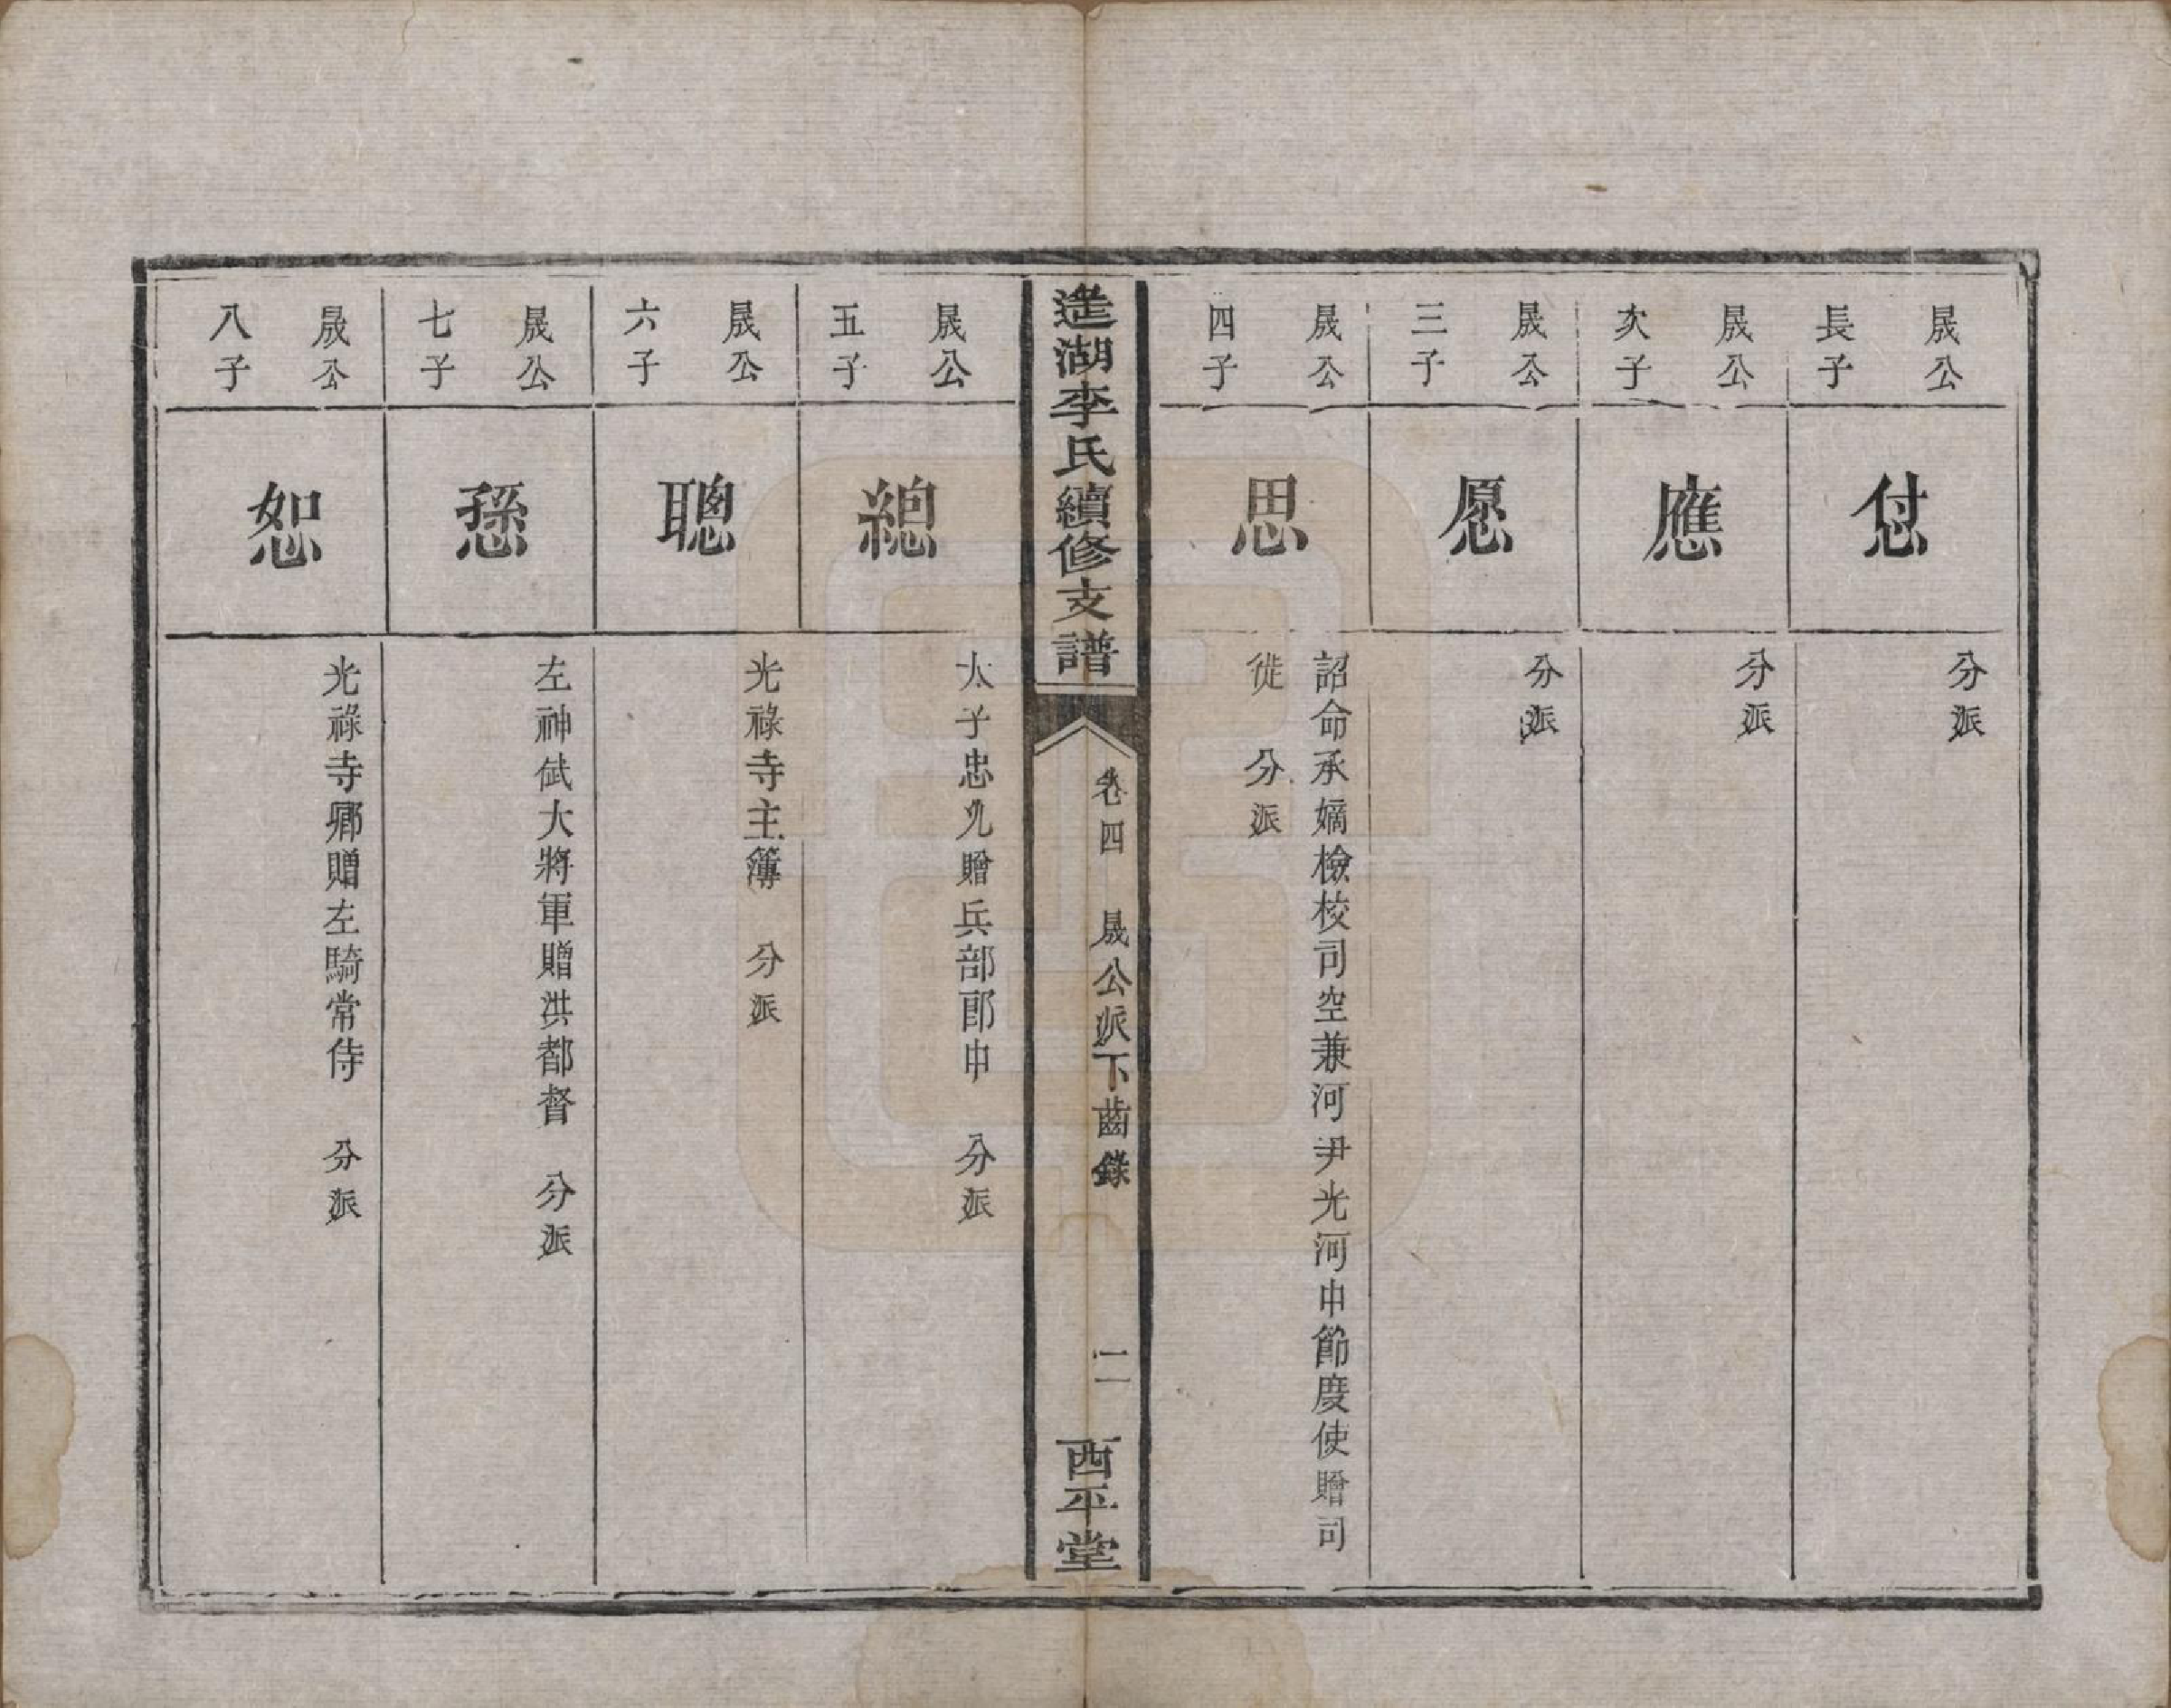 晟公
長子
怤
分派
晟公
次子
應
分派
晟公
三子
愿
分派
晟公
四子
思
詔命承嫡檢校司空兼河尹光河中節度使贈司
徙　分派
𨗿湖李氏續修支譜
卷四　晟公派下齒錄
二
西平堂
晟公
五子
總
太子忠允贈兵部郎中　分派
晟公
六子
聰
光祿寺主簿　分派
晟公
七子
愻
左神武大將軍贈洪都督　分派
晟公
八子
恕
光祿寺卿贈左騎常侍　分派